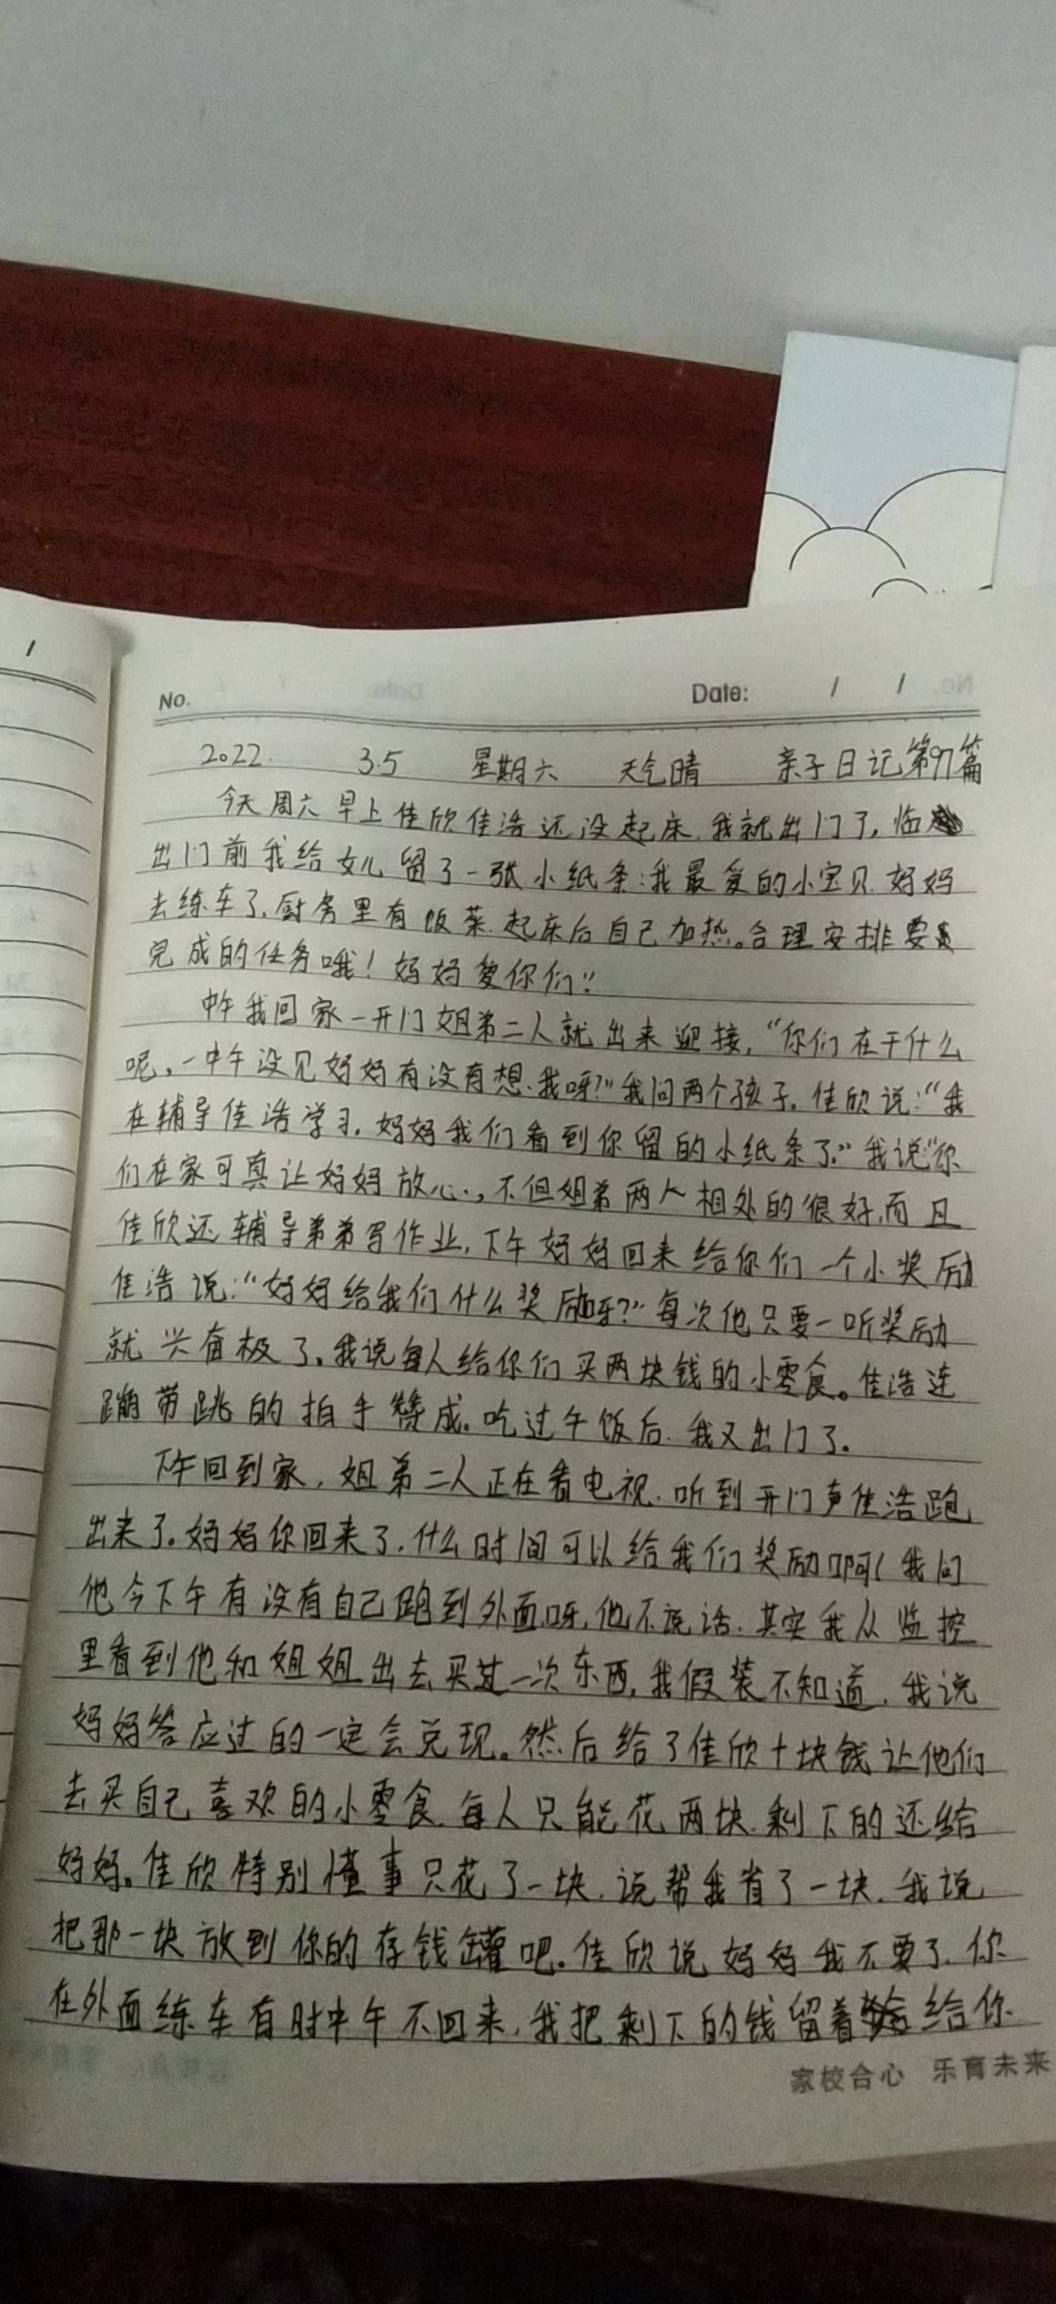 No.
Date: / /
2022. 3.5 星期六 天气晴 亲子日记第97篇
今天周六早上佳欣佳浩还没起床.我就出门了,临
出门前我给女儿留了一张小纸条:我最爱的小宝贝.妈妈
去练车了.厨房里有饭菜.起床后自己加热。合理安排要
完成的任务哦!妈妈爱你们!!
中午我回家一开门姐弟二人就出来迎接,“你们在干什么
呢。一中午没见妈妈有没有想.我呀?”我问两个孩子.佳欣说:“我
在辅导佳浩学习.妈妈我们看到你留的小纸条了.”我说“你
们在家可真让妈妈放心.,不但姐弟两人相处的很好,而且
佳欣还辅导弟弟写作业,下午妈妈回来给你们一个小奖励
佳浩说:“妈妈给我们什么奖励呀?”每次他只要一听奖励
就兴奋极了。我说每人给你们买两块钱的小零食。佳浩连
蹦带跳的拍手赞成。吃过午饭后.我又出门了。
下午回到家,姐弟二人正在看电视.听到开门声佳浩跑
出来了。妈妈你回来了.什么时间可以给我们奖励啊(我问
他今下午有没有自己跑到外面呀,他不说话.其实我从监控
里看到他和姐姐出去买过一次东西,我假装不知道,我说
妈妈答应过的一定会兑现。然后给了佳欣十块钱让他们
去买自己喜欢的小零食.每人只能花两块.剩下的还给
妈妈。佳欣特别懂事只花了一块.说帮我省了一块.我说
把那一块放到你的存钱罐吧。佳欣说妈妈我不要了.你
在外面练车有时中午不回来,我把剩下的钱留着给你
家校合心 乐育未来